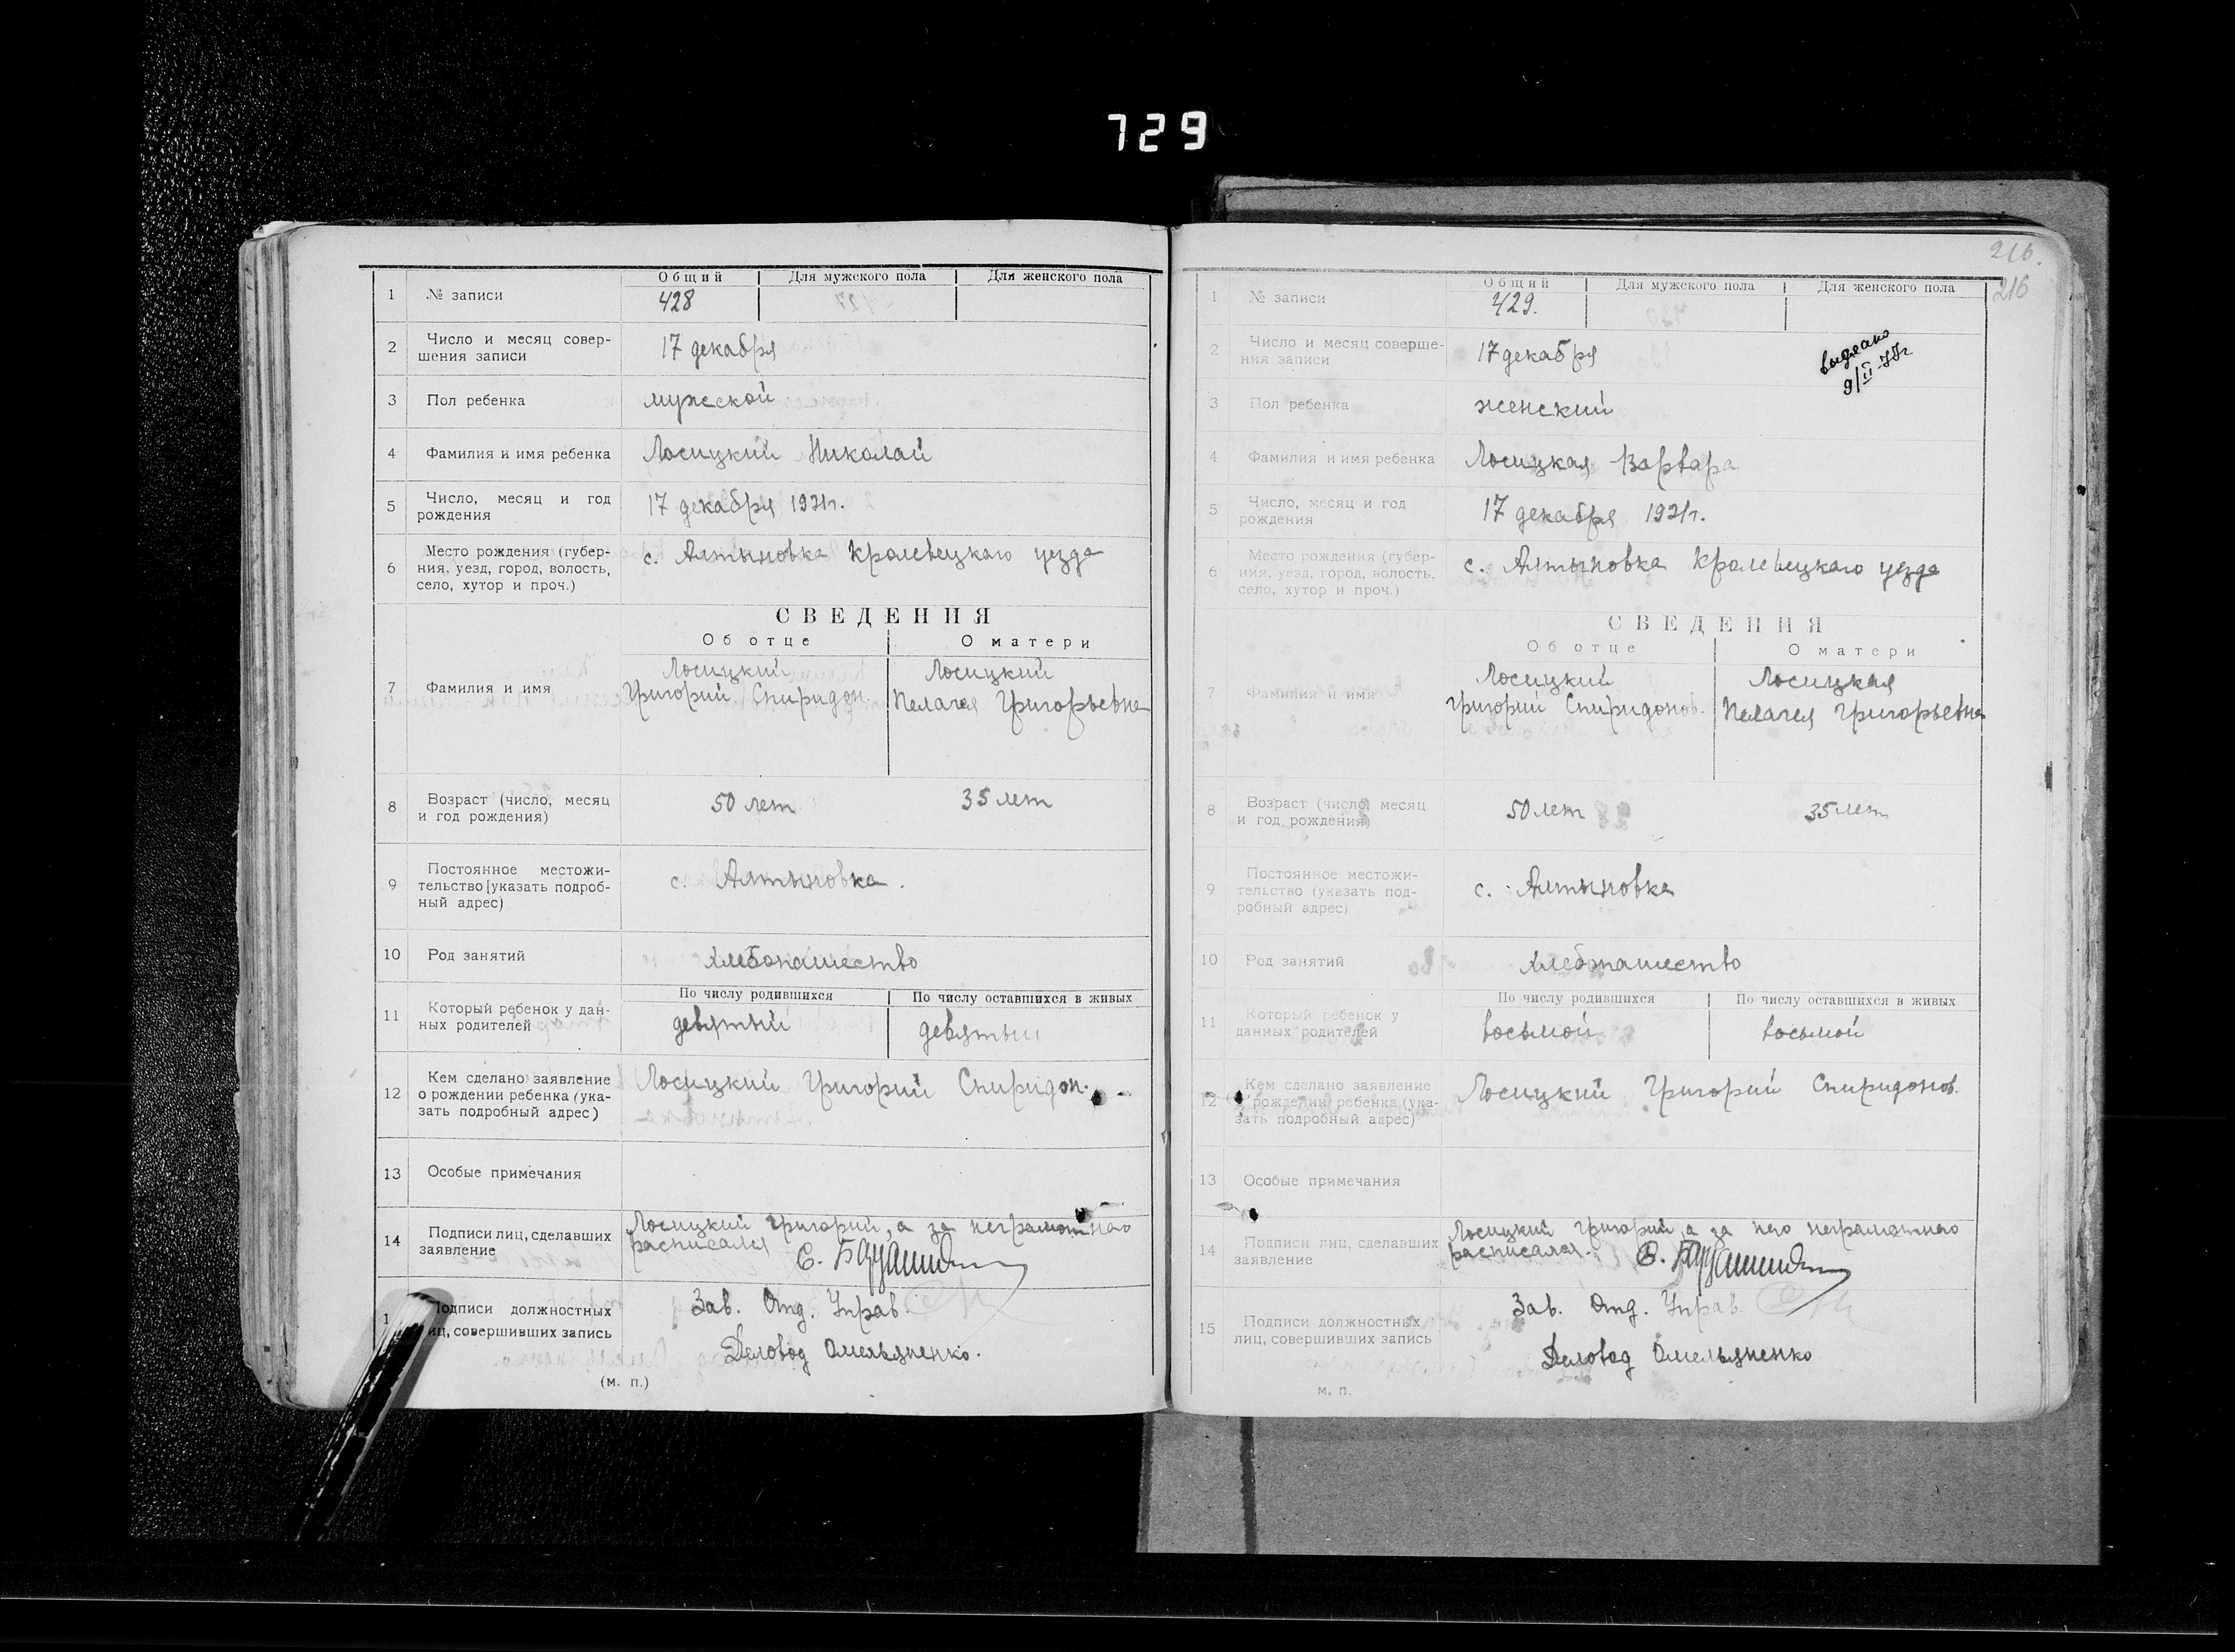 729
Общий Для мужского пола Для женского пола
1 № записи 428
2 Число и месяц совер-
шения записи 17 декабря
3 Пол ребенка мужеской
4 Фамилия и имя ребенка Лосицкий Николай
5 Число, месяц и год
рождения 17 декабря 1921 г.
6 Место рождения (губер-
ния, уезд, город, волость,
село, хутор и проч.) с. Алтыновка Кролевецкаго уезда
СВЕДЕНИЯ
Об отце О матери
7 Фамилия и имя
Лосицкий Лосицкий
Григорий Спиридон. Пелагея Григорьевна
8 Возраст (число, месяц
и год рождения) 50 лет 35 лет
9 Постоянное местожи-
тельство [указать подроб-
ный адрес) с. Алтыновка.
10 Род занятий хлебопашество
По числу родившихся По числу оставшихся в живых
11 Который ребенок у дан-
ных родителей девятый девятый
12 Кем сделано заявление
о рождении ребенка (ука-
зать подробный адрес) Лосицкий Григорий Спиридон.
13 Особые примечания
14 Подписи лиц, сделавших
заявление Лосицкий Григорий, а за неграмотнаго
расписался С.
1 Подписи должностных
лиц, совершивших запись Зав. Отд. Управ.
Деловод Омельяненко.
(м. п.)
216.
216
Общий Для мужского пола Для женского пола
1 № записи 429.
выдано
9/II-77г
2 Число и месяц соверше-
ния записи 17 декабря
3 Пол ребенка женский
4 Фамилия и имя ребенка Лосицкая Варвара
5 Число, месяц и год
рождения 17 декабря 1921 г.
6 Место рождения (губер-
ния, уезд, город, волость,
село, хутор и проч.) с. Алтыновка Кролевецкаго уезда
СВЕДЕНИЯ
Об отце О матери
7 Фамилия и имя
Лосицкий Лосицкая
Григорий Спиридонов. Пелагея Григорьевна
8 Возраст (число, месяц
и год рождения) 50 лет 35 лет
9 Постоянное местожи-
тельство (указать под-
робный адрес) с. Алтыновка
10 Род занятий хлебопашество
По числу родившихся По числу оставшихся в живых
11 Который ребенок у
данных родителей восьмой восьмой
12 Кем сделано заявление
о рождении ребенка (ука-
зать подробный адрес) Лосицкий Григорий Спиридонов.
13 Особые примечания
14 Подписи лиц, сделавших
заявление Лосицкий Григорий, а за него неграмотнаго
расписался. С.
15 Подписи должностных
лиц, совершивших запись Зав. Отд. Управ.
Деловод Омельяненко
м. п.